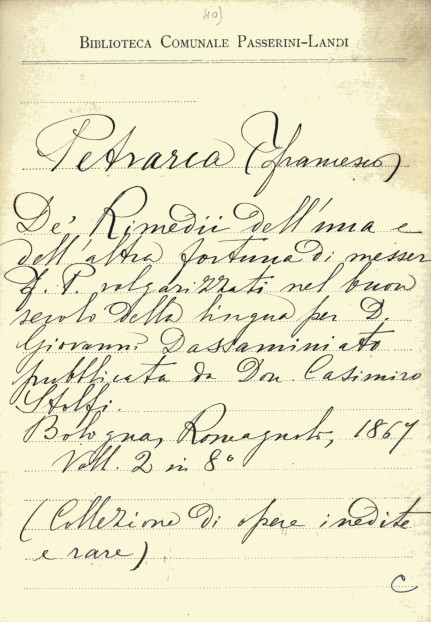 40)
BIBLIOTECA COMUNALE PASSERINI-LANDI
Petrarca (Francesco)
De' Rimedii dell'una e
dell'altra fortuna di messer
F. P. volgarizzati nel buon
secolo della lingua per D.
Giovanni Dassaminiato
pubblicata da Don Casimiro
Stolfi.
Bologna, Romagnoli, 1867
Voll. 2 in 8°
(Collezione di opere inedite
e rare)
C